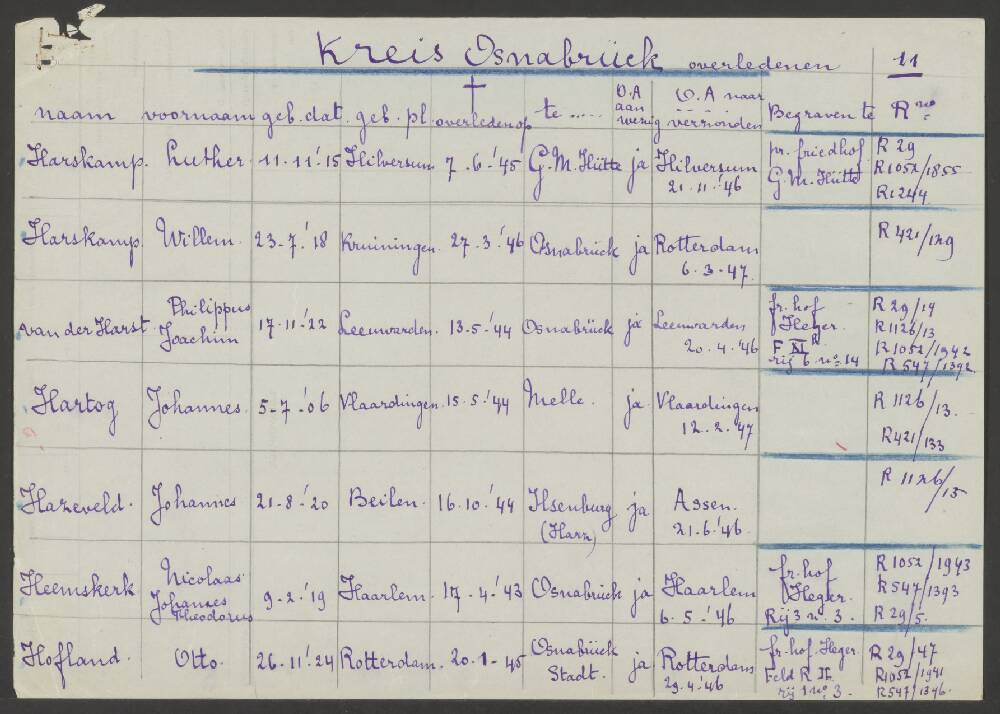 Kreis Osnabrück overledenen 11
naam voornaam geb. dat. geb. pl. † overleden op te ..... O.A aan wezig O.A naar verzonden Begraven te R no:
Harskamp. Luther. 11.11.'15 Hilversum 7.6.'45 G.M.Hütte ja Hilversum 21.11.'46 pr. friedhof G.M.Hütte R 29 R1052/1855 R1244
Harskamp. Willem. 23-7.'18 Kruiningen. 27.3.'46 Osnabrück ja Rotterdam 6.3.47. R 421/129
van der Harst. Philippus Joachim 17-11-'22 Leeuwarden. 13-5.'44 Osnabrück ja Leeuwarden 20.4.'46 fr. hof Heger. F XI R rij 6 no: 14 R 29/14 R1126/13 R1052/1942 R547/1392
Hartog Johannes. 5-7-'06 Vlaardingen. 15.5.'44 Melle. ja. Vlaardingen 12.2.'47 R 1126/13. R421/133
Hazeveld. Johannes 21-8.'20 Beilen. 16.10.'44 Ilsenburg (Harz) ja Assen. 21.6.'46. R 1126/15
Heemskerk Nicolaas Johannes Theodorus 9-2.'19 Haarlem. 17.4.'43 Osnabrück ja Haarlem 6.5.'46 fr. hof Heger. Rij 3 no. 3. R 1052/1943 R547/1393 R 29/5.
Hofland. Otto. 26.11.'24 Rotterdam. 20.1-45 Osnabrück Stadt. ja Rotterdam 29.4.'46 fr. hof. Heger. Feld R II. rij 1 no: 3. R 29/47 R1052/1941 R547/1396.